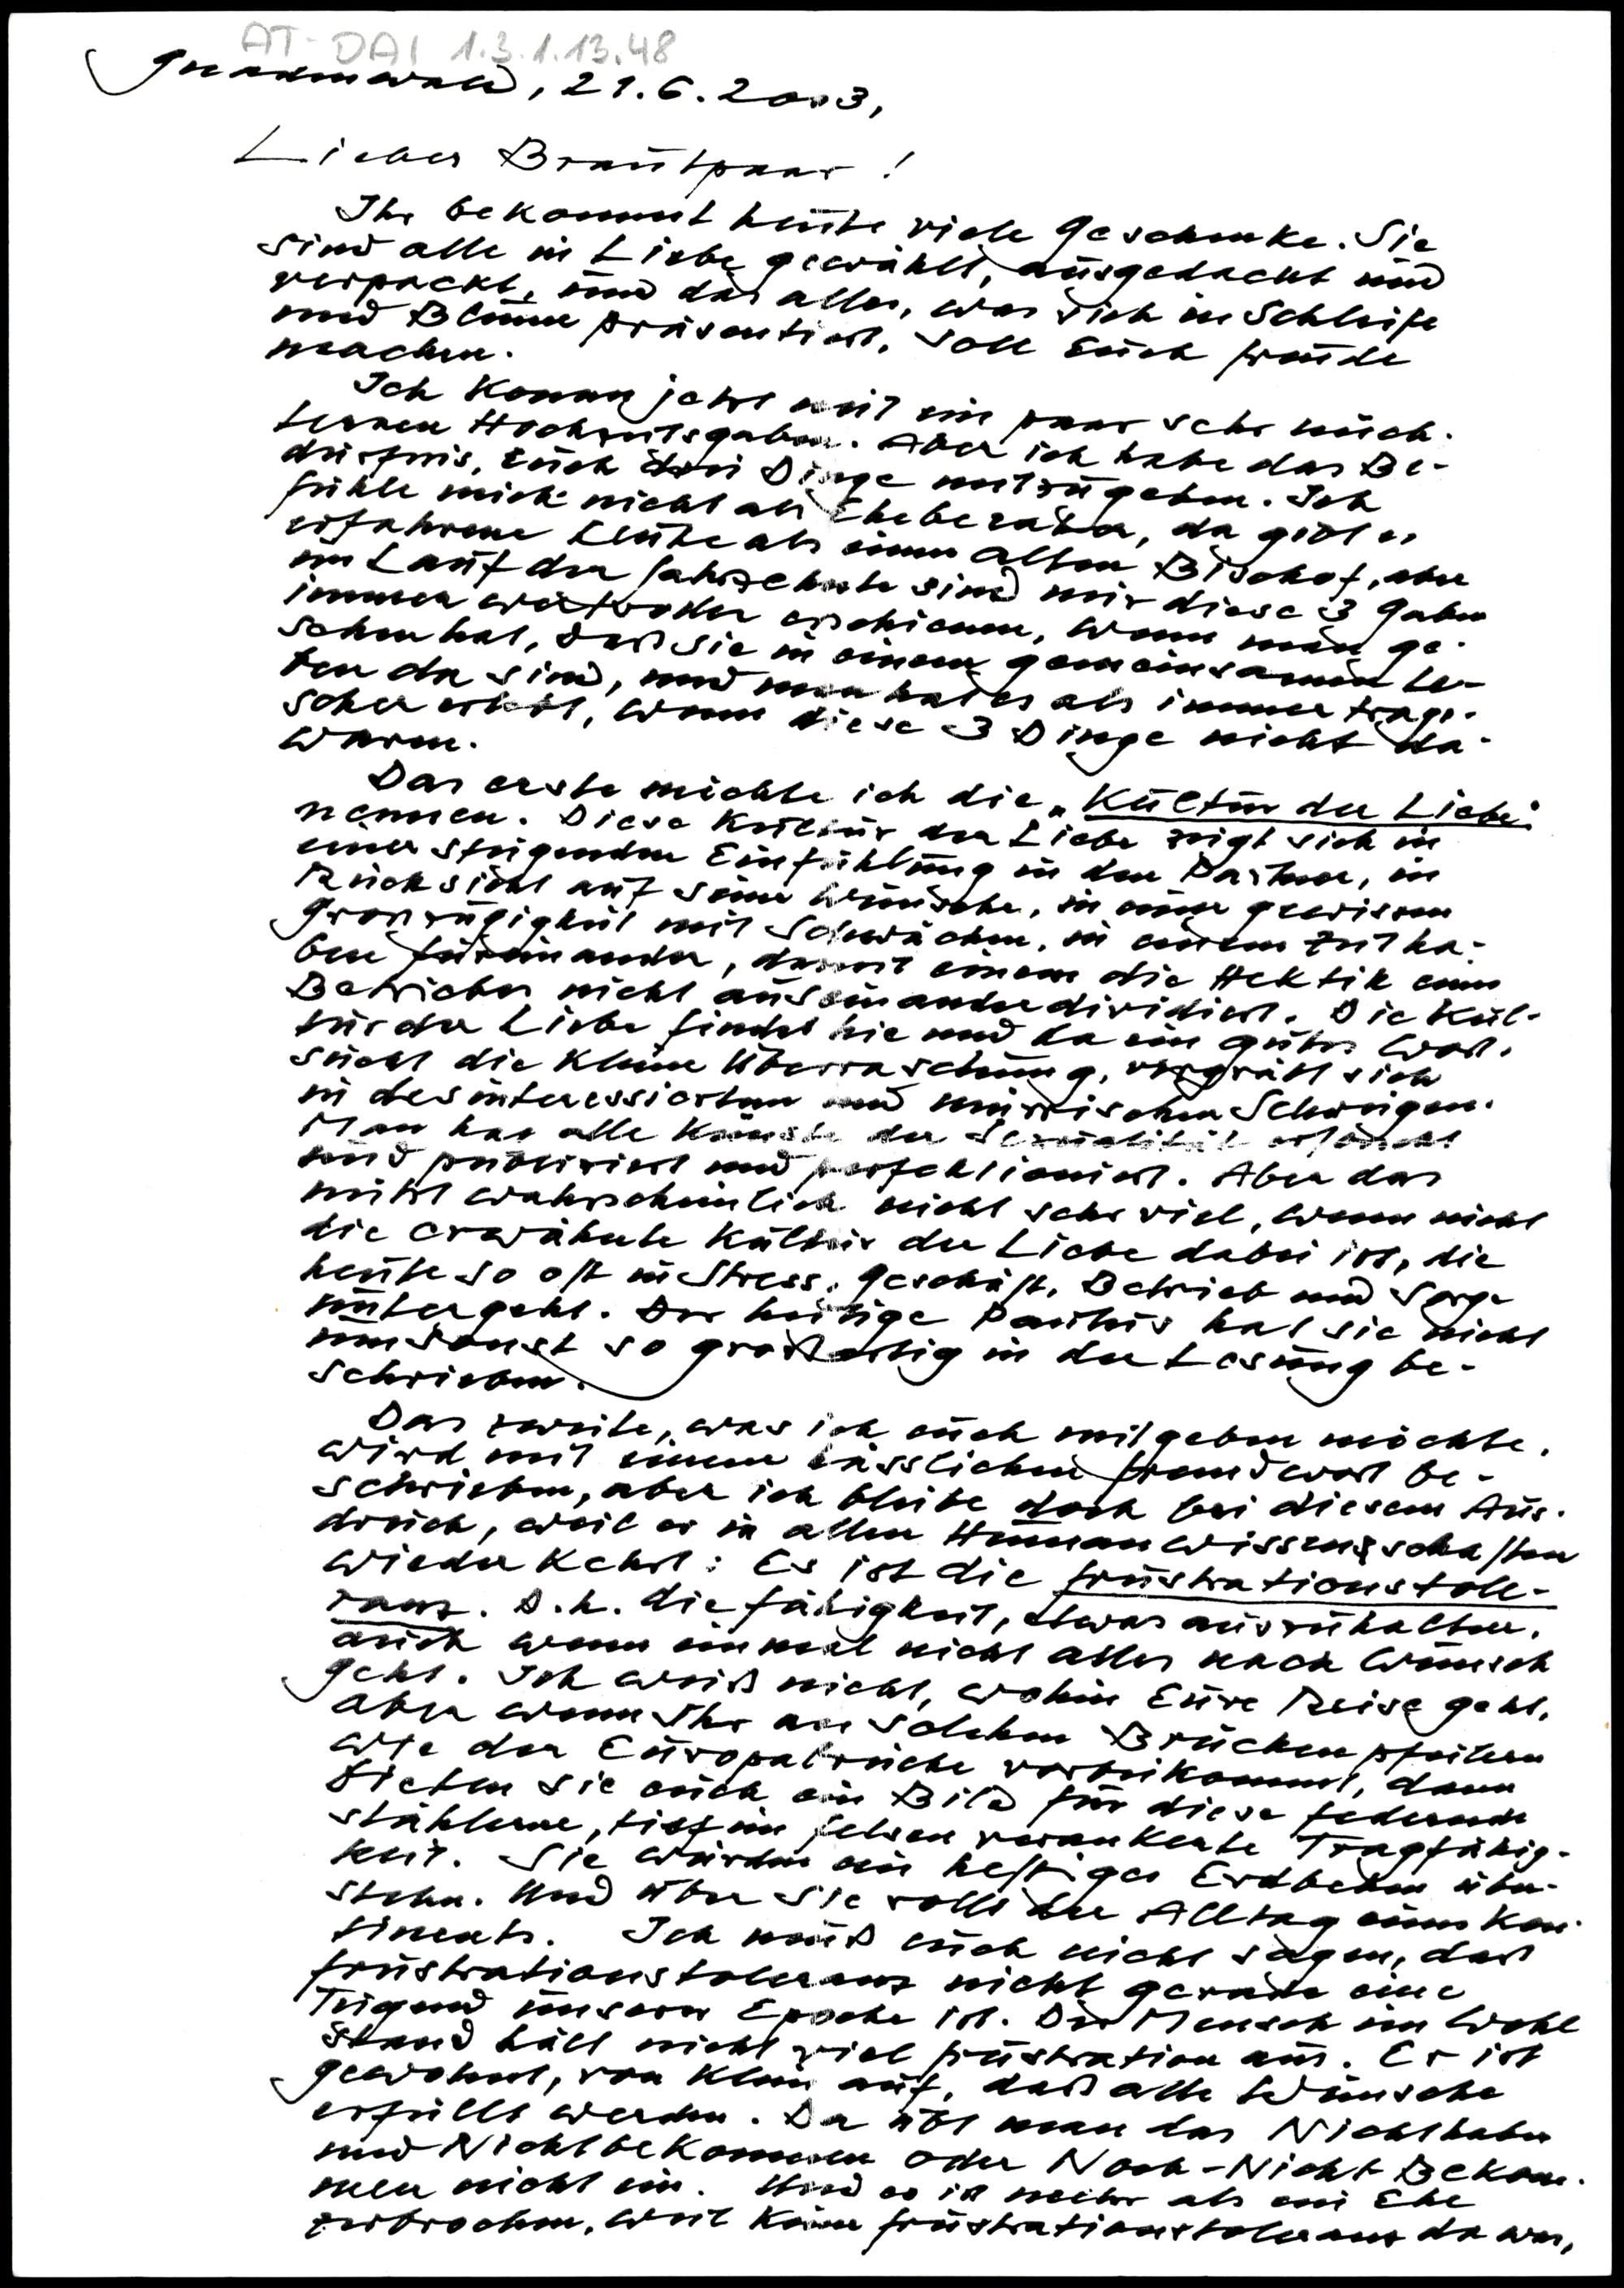 AT-DAI 1.3.1.13.48
Gnadenwald, 21.6.2003,
Liebes Brautpaar!
Ihr bekommt heute viele Geschenke. Sie
sind alle in Liebe gewählt, ausgedacht und
verpackt, und das alles, was sich in Schleife
und Blume präsentiert, soll Euch Freude
machen.
Ich komm jetzt mit ein paar sehr nüch-
ternen Hochzeitsgaben. Aber ich habe das Be-
dürfnis, Euch drei Dinge mitzugeben. Ich
fühle mich nicht als Eheberater, da gibt es
erfahrene Leute als einen alten Bischof, aber
im Lauf der Jahrzehnte sind mir diese 3 Gaben
immer wertvoller erschienen, wenn man ge-
sehen hat, daß sie in einem gemeinsamen Le-
ben da sind, und man hat es als immer tragi-
scher erlebt, wenn diese 3 Dinge nicht da-
waren.
Das erste möchte ich die „Kultur der Liebe"
nennen. Diese Kultur der Liebe zeigt sich in
einer steigenden Einfühlung in den Partner, in
Rücksicht auf seine Wünsche, in einer gewissen
Grosszügigkeit mit Schwächen, in einem Zeitha-
ben füreinander, damit einem die Hektik eines
Betriebes nicht auseinanderdividiert. Die Kul-
tur der Liebe findet hie und da ein gutes Wort,
sucht die kleine Überraschung, vergräbt sich
in desinteressiertem und mürrischem Schweigen.
Man hat alle Künste der Sexualität erforscht
und publiziert und perfektioniert. Aber das
nützt wahrscheinlich nicht sehr viel, wenn nicht
die erwähnte Kultur der Liebe dabei ist, die
heute so oft in Stress, Geschäft, Betrieb und Sorge
untergeht. Der heilige Paulus hat sie nicht
umsonst so großartig in der Lesung be-
schrieben.
Das zweite, was ich euch mitgeben möchte,
wird mit einem hässlichen Fremdwort be-
schrieben, aber ich bleibe doch bei diesem Aus-
druck, weil er in allen Humanwissenschaften
wiederkehrt: Es ist die Frustrationstole-
ranz. D.h. die Fähigkeit, etwas auszuhalten,
auch wenn einmal nicht alles nach Wunsch
geht. Ich weiß nicht, wohin Eure Reise geht,
aber wenn Ihr an solchen Brückenpfeilern
wie der Europabrücke vorbeikommt, dann
bieten sie euch ein Bild für diese federnde
stählerne, tief im Felsen verankerte Tragfähig-
keit. Sie würden ein heftiges Erdbeben über-
stehn. Und über sie rollt der Alltag eines Kon-
tinents. Ich muß euch nicht sagen, daß
Frustrationstoleranz nicht gerade eine
Tugend unserer Epoche ist. Der Mensch im Wohl
stand hält nicht viel Frustration aus. Er ist
gewohnt, von klein auf, daß alle Wünsche
erfüllt werden. Da übt man das Nichthaben
und Nichtbekommen oder Noch-Nicht-Bekom-
men nicht ein. Und es ist mehr als eine Ehe
zerbrochen, weil keine Frustrationstoleranz da war,